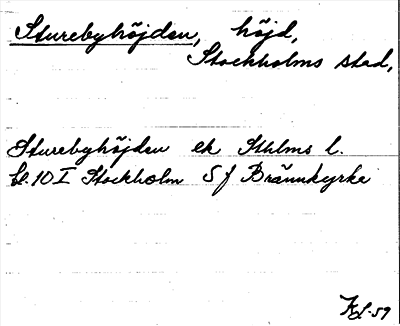 Sturebyhöjden, höjd,
Stockholms stad,
Sturebyhöjden ek Sthlms l.
bl. 10 I Stockholm S f Brännkyrka
Kf-59